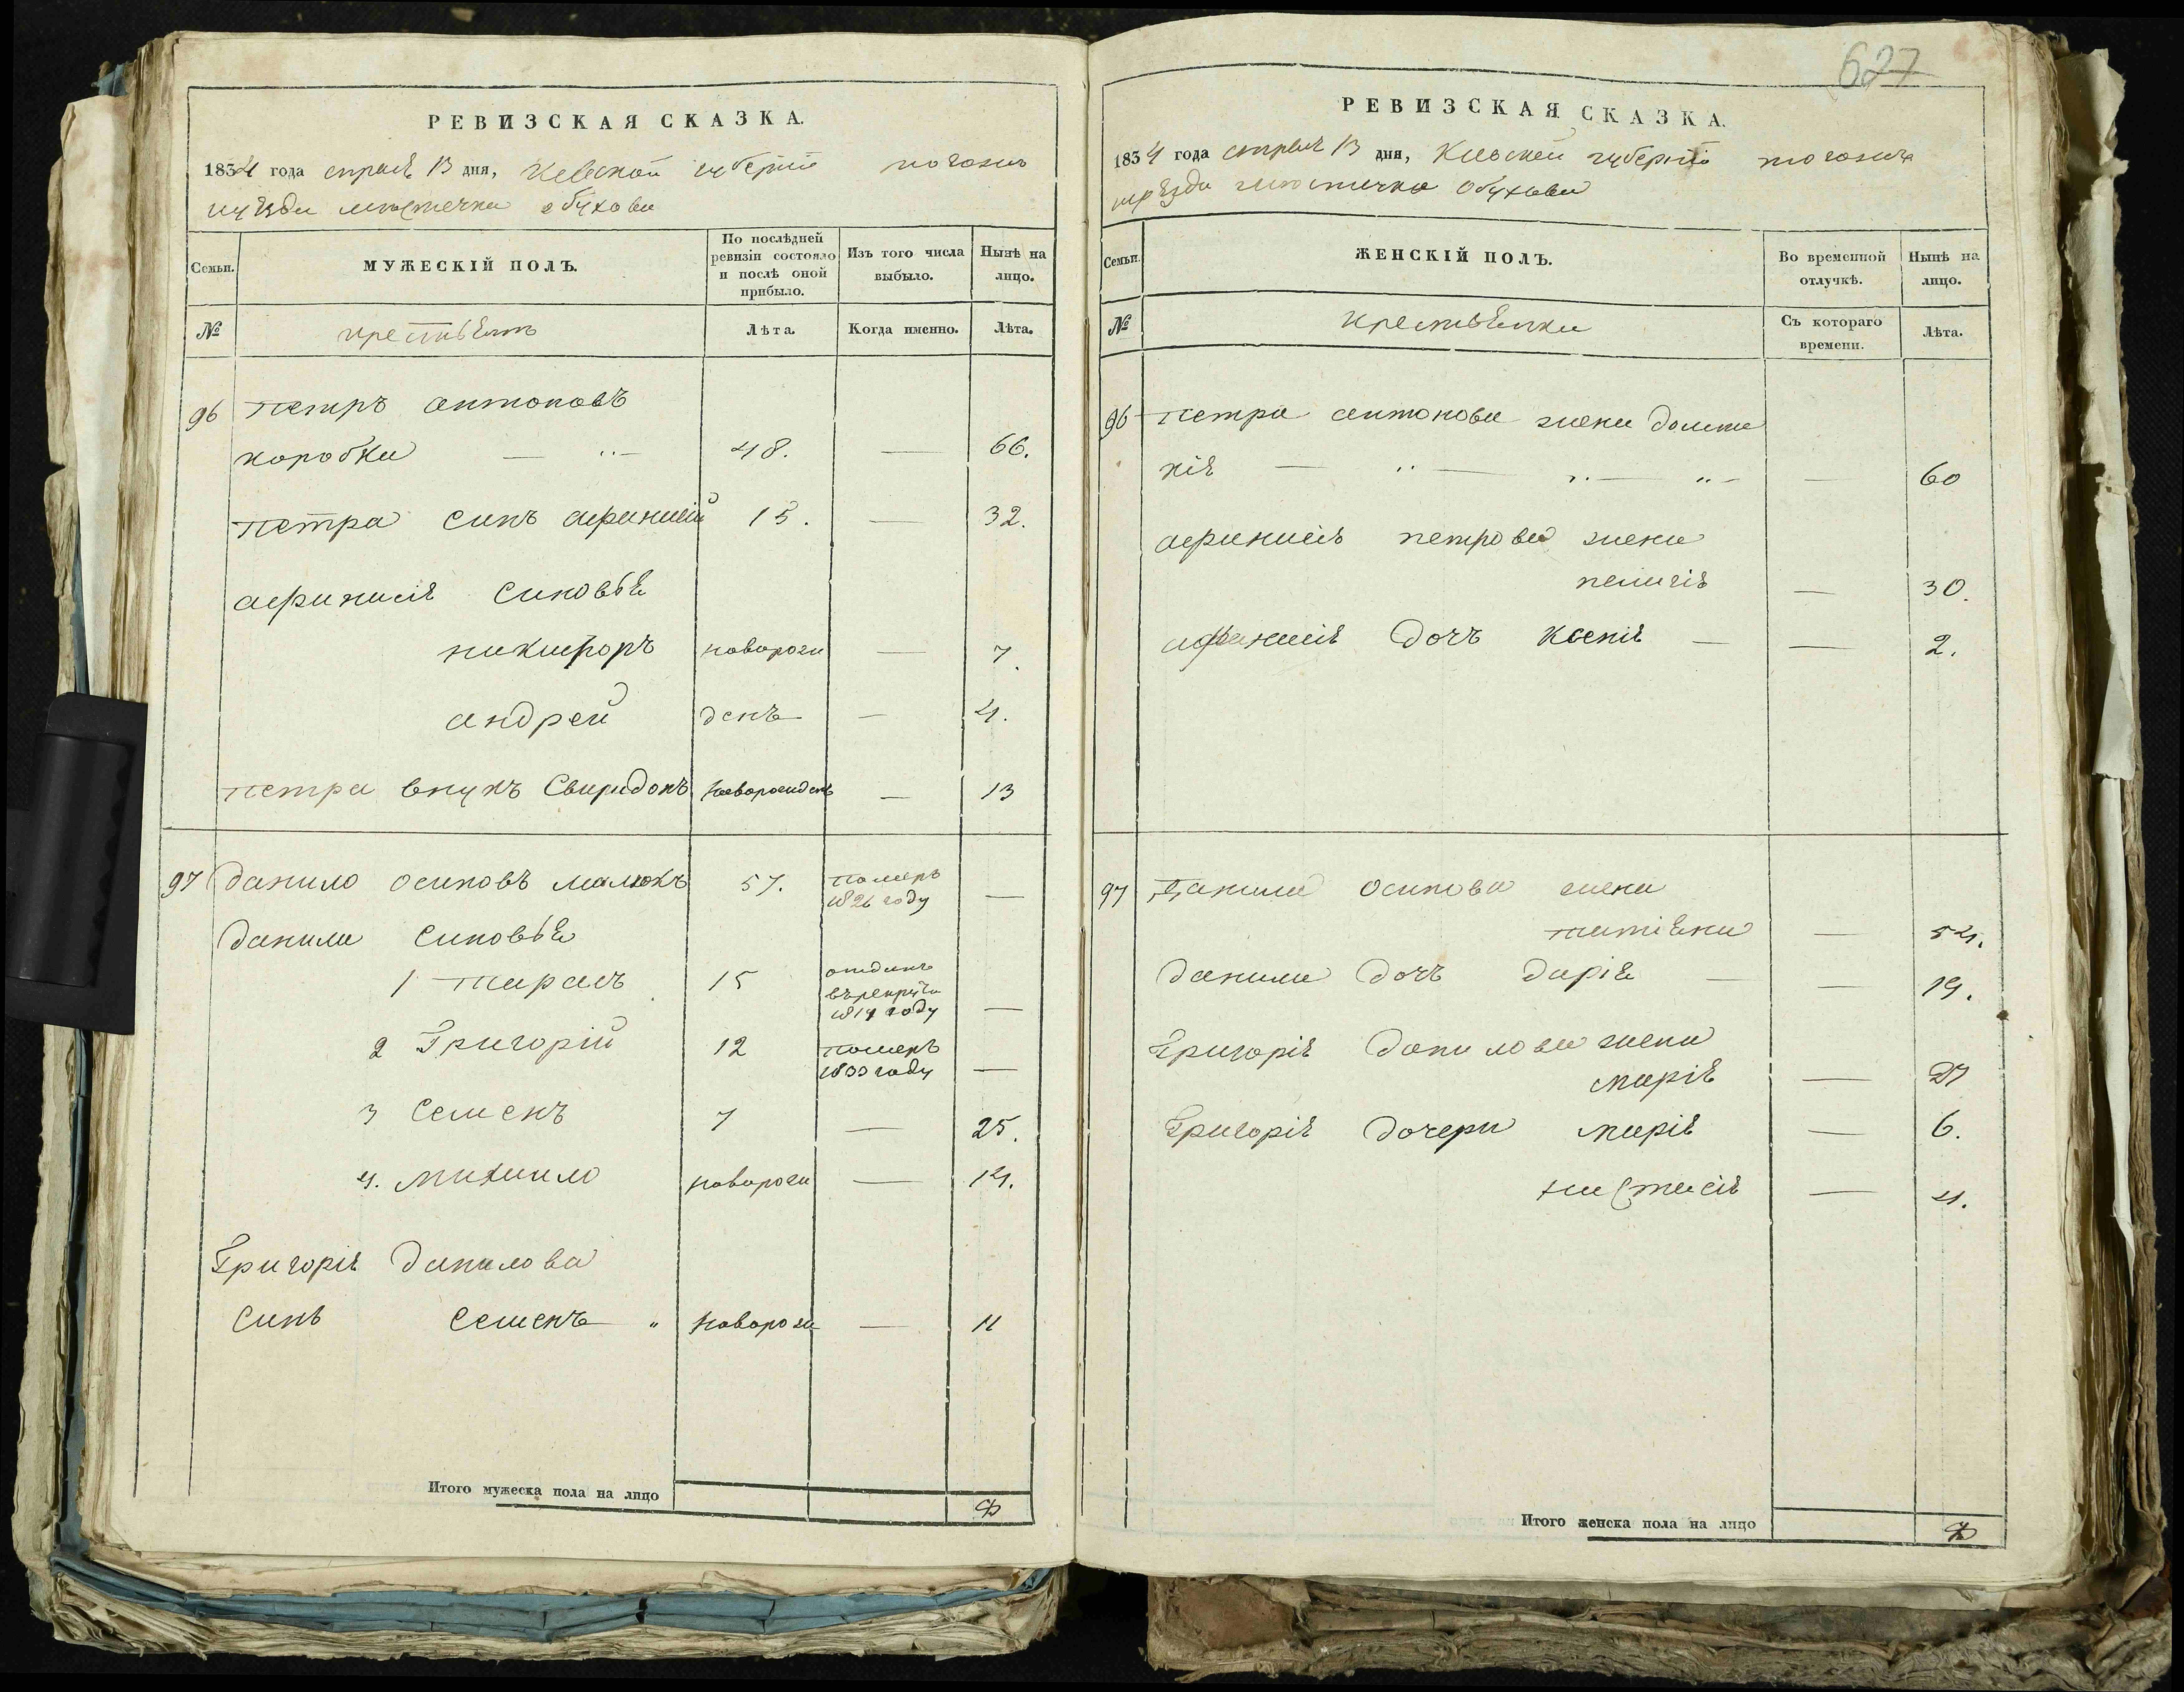 РЕВИЗСКАЯ СКАЗКА.
1834 года апрѣлѣ 13 дня, Кевской губернiи
уѣзди мѣстечка обухова
Семьи.
МУЖЕСКІЙ ПОЛЪ.
По послѣдней ревизіи состояло и послѣ оной прибыло.
Изъ того числа выбыло.
Нынѣ на лицо.
№
Лѣта.
Когда именно.
Лѣта.
96 Петръ антоновъ
коробка — 48. — 66.
Петра синъ афанасій 15. — 32.
афанасіѣ синовьѣ
никифоръ новорож — 7.
андрей денъ — 4.
Петра внукъ Свиридонъ новорожденъ — 13
97 Данило осиповъ малюкъ 57. померъ 1826 году —
Данила синовьѣ
1 Тарасъ 15 отданъ въ рекруты 1819 году —
2 Григорій 12 померъ 1833 году —
3 Семенъ 7 — 25.
4. михаило новорож — 14.
Григоріѣ Данилова
Синъ Семенъ " новорож — 11
Итого мужеска пола на лицо
627
РЕВИЗСКАЯ СКАЗКА.
1834 года апрѣлѣ 13 дня, Киевской губернiи
уѣзда мѣстечка Обухова
Семьи.
ЖЕНСКІЙ ПОЛЪ.
Во временной отлучкѣ.
Нынѣ на лицо.
№
крестьѣнки
Съ котораго времени.
Лѣта.
96 Петра антонова жена Домни
кіѣ — — 60
афанасіѣ петрова жена
пелагіѣ — 30.
афанасіѣ дочъ Ксеніѣ — — 2.
97 Данила осипова жена
татіѣна — 54.
Данила дочъ даріѣ — — 19.
Григоріѣ данилова жена
маріѣ — 27
Григоріѣ дочери маріѣ — 6.
настасіѣ — 4.
Итого женска пола на лицо